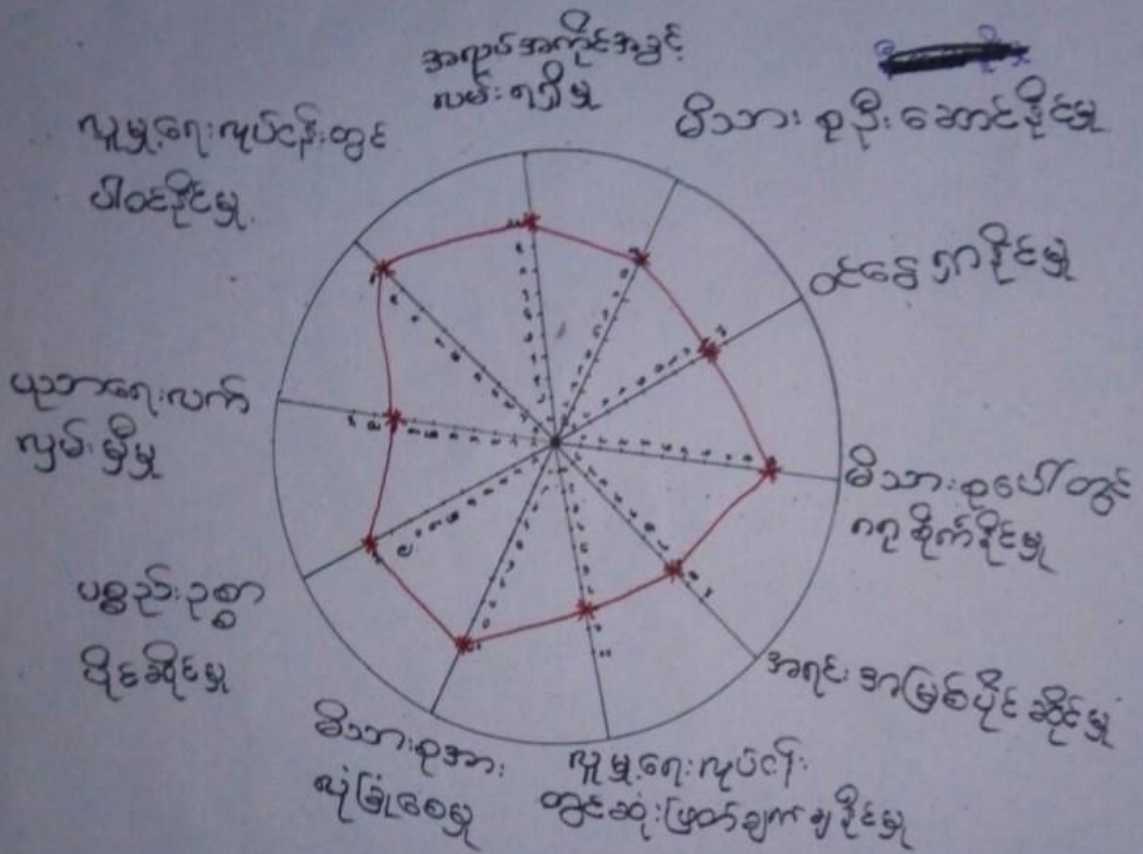 အလုပ်အကိုင်အခွင့်
လမ်းရရှိမှု
မိသားစုဦးဆောင်နိုင်မှု
ဝင်ငွေရှာနိုင်မှု
မိသားစုပေါ်တွင်
ဂရုစိုက်နိုင်မှု
အရင်းအမြစ်ပိုင်ဆိုင်မှု
လူမှုရေးလုပ်ငန်း
တွင်ဆုံးဖြတ်ချက်ချနိုင်မှု
မိသားစုအား
လုံခြုံစေမှု
ပစ္စည်းဥစ္စာ
ပိုင်ဆိုင်မှု
ပညာရေးလက်
လှမ်းမှီမှု
လူမှုရေးလုပ်ငန်းတွင်
ပါဝင်နိုင်မှု